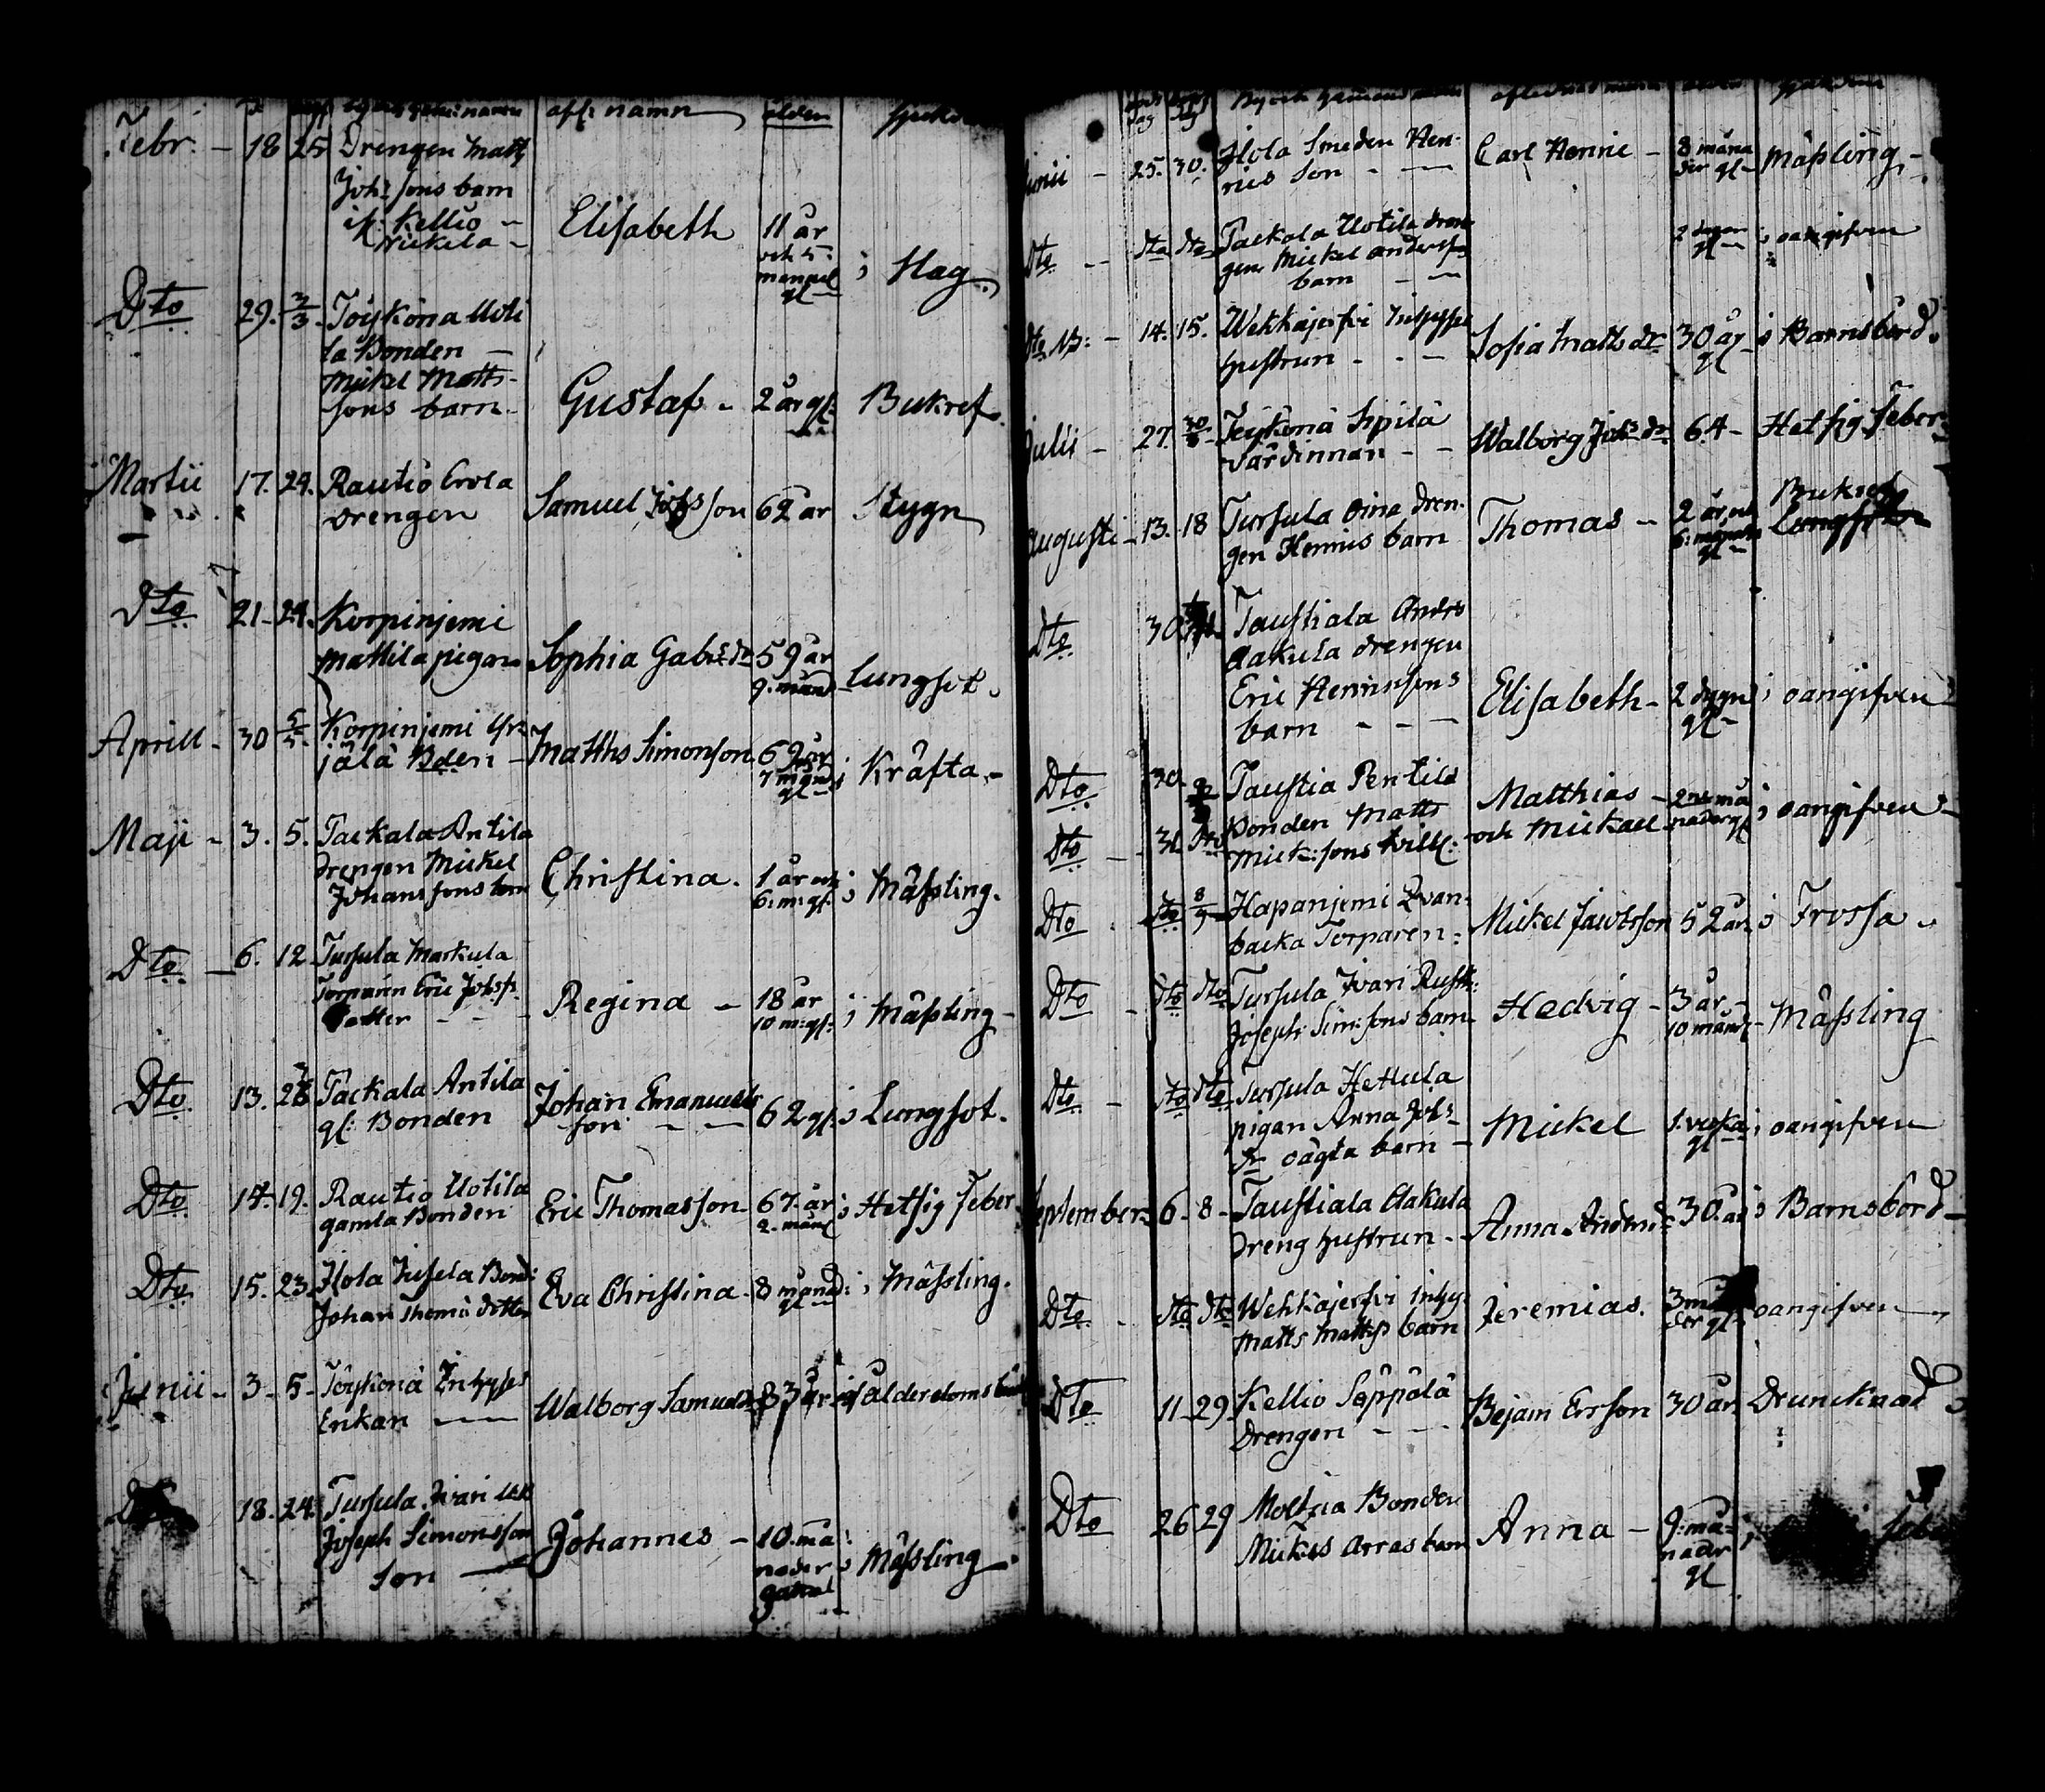 afl: namn
ålder
Febr. - 18 25 Drengen Matts
Joh: sons barn
if: Kellio -
Nickela -
Elisabeth 11 år
och 5
månad
gl
i Hag
Dto 29. 2/3 Töykönä Uoti
la Bonden -
Mickel Matts-
sons barn -
Gustaf - 2 år gl: Bukref
Martii 17. 24. Rautio Erola
Drengen Samuel Johsson 62 år Stygn
Dto 21 - 24. Korpinjemi
Mattila pigan Sophia Gabr: dr 59 år
9. mån Lungsot.
Aprill - 30 5/5 Korpinjemi Yr-
jälä Bden - Matths Simonson 69 år
7 mån
gl i Kräfta -
Maji - 3. 5. Tackala Antila
Drengen Mickel
Johanssons barn Christina. 1 år och
6: m: gl: i Mässling.
Dto - 6. 12 Tursula Markula
Torparen Eric Johss.
dotter - - Regina - 18 år
10 m: gl: i Mässling -
Dto 13. 28 Tackala Antila
gl: Bonden Johan Emanuels
son - - 62 gl: i Lungsot.
Dto 14. 19. Rautio Uotila
gamla Bonden Eric Thomasson 67. år
2. mån i Hetsig feber
Dto 15. 23. Ilola Jusela Bond:
Johan Thom: dotter Eva Christina - 8 månad:
gl i Mässling.
Junii - 3 - 5 - Töykönä Inhyses
Enkan - Walborg Samuels dr 83 år af ålderdoms
Dto 18. 24. Tursula Iwari
Joseph Simonsson
son - Johannes - 10. må
nader
gamal i Mässling
Junii - 25. 30. Ilola Smeden Hen-
rics son - - Carl Henric - 8 måna
der gl - Mässling -
Dto - - dto dto Tackala Uotila dren
gen Mickel Anderss
barn - - 2 dagar
gl - i oangifven
Dto NB: - 14. 15. Wehkajerfvi Inhyses
hustrun - - - Sofia Matts dr 30 år
gl i Barnsbörd.
Julii - 27. 30/8 - Töykönä Sipilä
värdinnan - - Walborg Joh: dr 64 - Hetsig feber
Augusti - 13. - 18 Tursula Oina dren-
gen Henrics barn Thomas - 2 år och
6: månader
gl - Bukref
Dto 30 Taustiala Anders
Aakula drengen
Eric Henricssons
barn - - - Elisabeth - 2 dygn
gl - i oangifven
Dto 30. Taustia Pentilä
Bonden Matts
Mick: sons tvill:
Matthias -
och Mickael 2ne må
nader gl i oangifven -
Dto - - 31 dto
Dto dto 8/9 Hapanjemi Qvan-
backa Torparen: Mickel Jacobsson 52 år i Frossa -
Dto - dto dto Tursula Iwari Rusth:
Joseph Sim: sons barn Hedvig - 3 år -
10 mån - Mässling
Dto - dto dto Tursula Hettula
pigan Anna Joh:
dr oägta barn - Mickel 1. vecka
gl i oangifven
September 6 - 8 - Taustiala Aakula
Dreng hustrun - Anna Anders dr 30. år i Barnsbörd -
Dto - dto dto Wehkajerfvi Inhy:
Matts Mattss barn Jeremias. 3 må
der gl - oangifven -
Dto 11 - 29. Kellio Säppälä
Drengen - - Bejam Ersson 30 år Drunknad
Dto 26 29 Moltzia Bonden
Mickels Arras barn Anna - 9: må-
nader
gl i feber